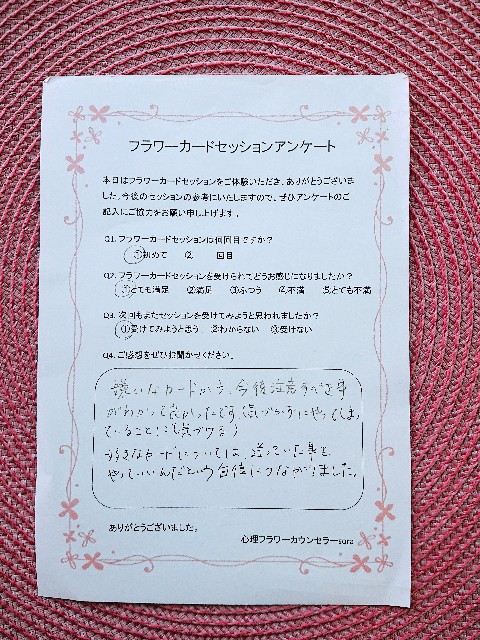 フラワーカードセッションアンケート
本日はフラワーカードセッションをご体験いただき、ありがとうございま
した。今後のセッションの参考にいたしますので、ぜひアンケートのご
記入にご協力をお願い申し上げます。
Q1. フラワーカードセッションは何回目ですか?
①初めて ②. 回目
Q2. フラワーカードセッションを受けられてどうお感じになりましたか?
①とても満足 ②満足 ③ふつう ④.不満 ⑤.とても不満
Q3. 次回もまたセッションを受けてみようと思われましたか?
①受けてみようと思う ②わからない ③受けない
Q4. ご感想をぜひお聞かせください。
嫌いなカードから、今後注意すべき事
がわかって良かったです(気づかずにやってしまっ
ていることにも気づける)
好きなカードについては、迷っていた事を
やっていいんだという自信につながりました。
ありがとうございました。
心理フラワーカウンセラーsora